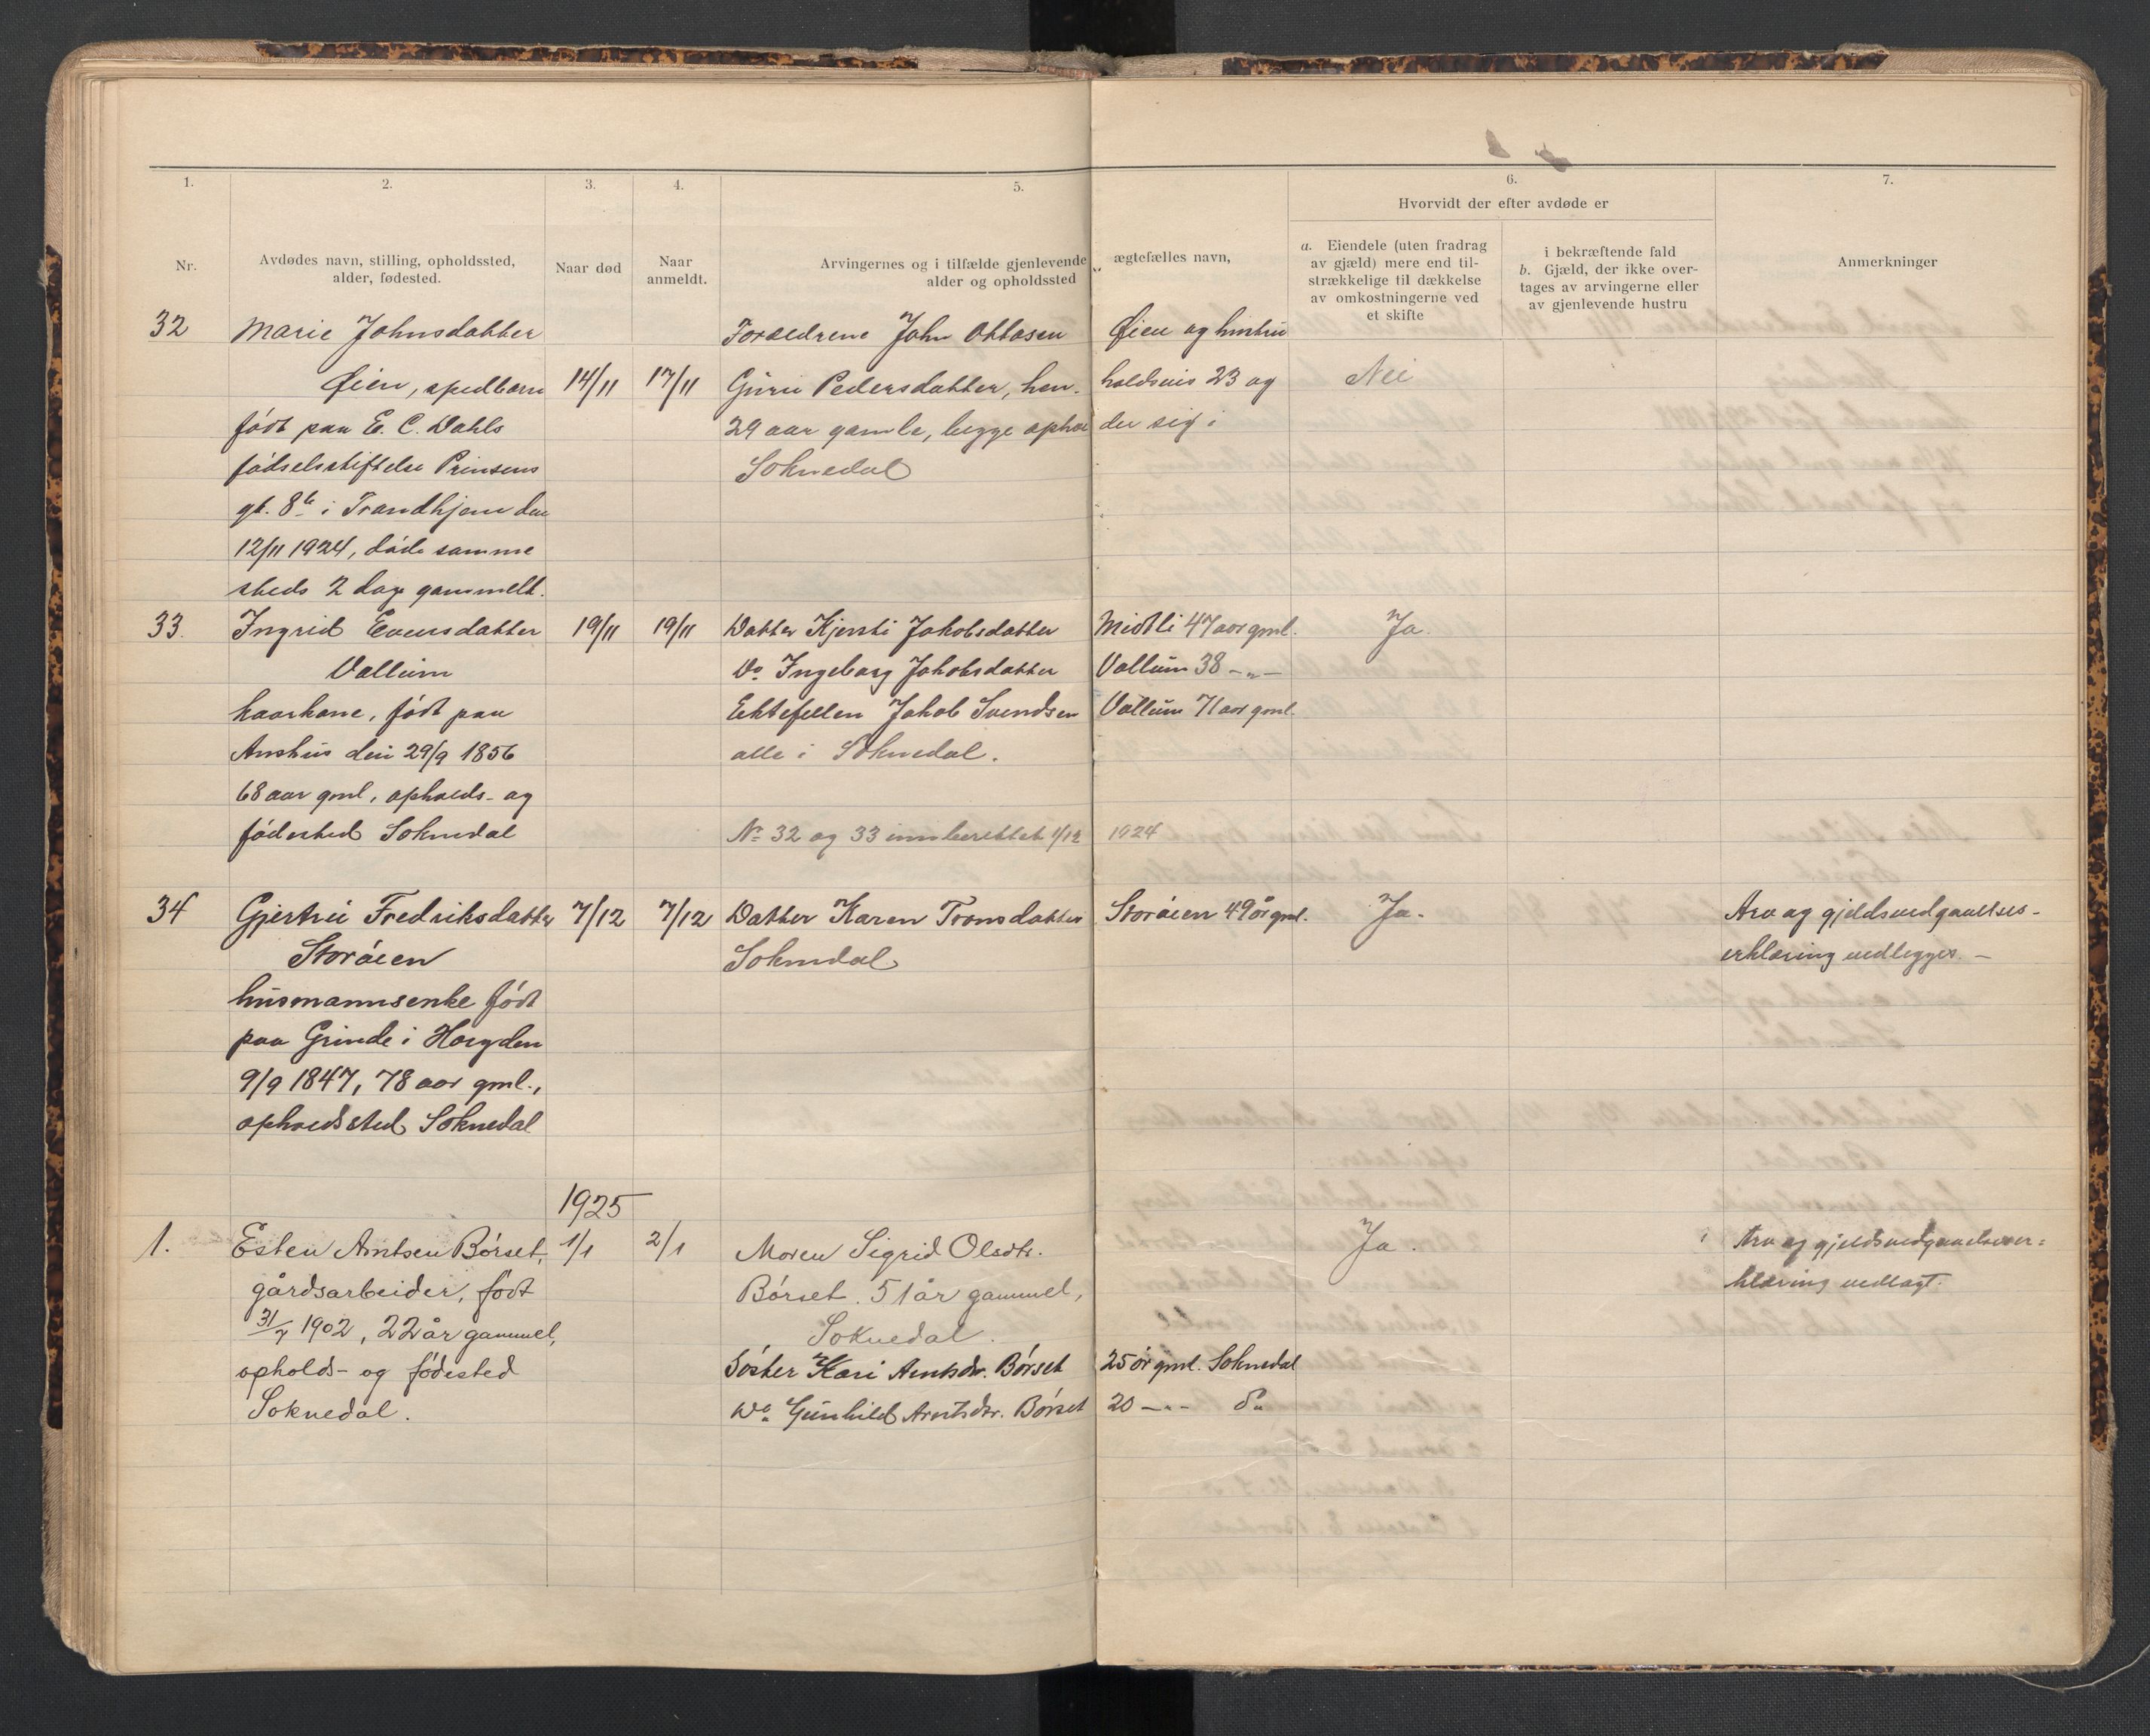 1. 2. 3. 4. 5. 6. 7.
Hvorvidt der efter avdøde er
Nr.
Avdødes navn, stilling, opholdssted,
alder, fødested.
Naar død
Naar
anmeldt.
Arvingernes og i tilfælde gjenlevende ægtefælles navn,
alder og opholdssted
a. Eiendele (uten fradrag
av gjæld) mere end til-
strækkelige til dækkelse
av omkostningerne ved
et skifte
i bekræftende fald
b. Gjæld, der ikke over-
tages av arvingerne eller
av gjenlevende hustru
Anmerkninger
32 Marie Johnsdatter Foreldrene John Ottosen Øien og hustru
Øien, spedbarn 14/11 17/11 Guru Pedersdatter, hen- holdsvis 23 og Nei
født paa E. C. Dahls 29 aar gamle, begge ophol der sig i
fødselsstiftelse Prinsens Soknedal
gt. 8b i Trondhjem den
12/11 1924, døde samme
steds 2 dage gammelt.
33. Ingrid Evensdatter 19/11 19/11 Datter Kjersti Jakobsdatter Midtli 47 aar gml. Ja.
Vollum Do Ingeborg Jakobsdatter Vollum 38 -„-
kaarkone, født paa Ektefellen Jakob Svendsen Vollum 71 aar gml.
Anshus den 29/9 1856 alle i Soknedal.
68 aar gml, opholds- og
fødested Soknedal No 32 og 33 innberettet 1/12 1924
34 Gjertru Fredriksdatter 7/12 7/12 Datter Karen Tronsdatter Storøien 49 år gml. Ja. Arv og gjeldsvedgaaelses-
Storøien Soknedal erklæring vedlegges. -
husmannsenke født
paa Grinde i Horg den
9/9 1847, 78 aar gml.,
opholdssted Soknedal
1925
1. Esten Arntsen Børset, 1/1 2/1 Moren Sigrid Olsdtr. Ja. Arv og gjeldsvedgaaelseser=
gårdsarbeider, født Børset. 51 år gammel, klæring vedlagt.
31/7 1902, 22 år gammel, Soknedal.
opholds- og fødested Søster Kari Arntsdr. Børset 25 år gml. Soknedal
Soknedal. Do Gunhild Arntsdr. Børset 20 -„- do